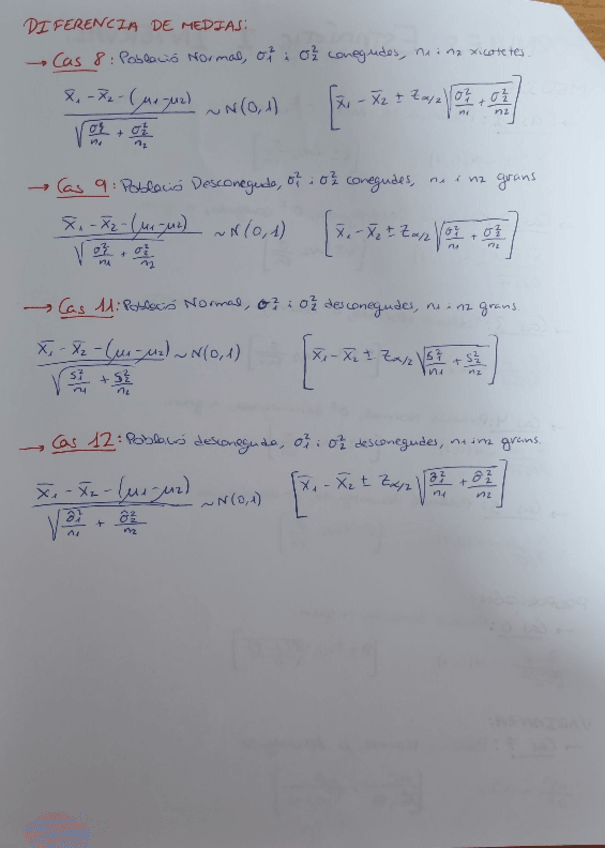 DIFERENCIA DE MEDIAS:
→ Cas 8: Població Normal, σ₁² i σ₂² conegudes, n₁ i n₂ xicotetes.
(x̄₁ - x̄₂ - (μ₁-μ₂)) / √(σ₁²/n₁ + σ₂²/n₂) ~ N(0,1) [x̄₁ - x̄₂ ± Z_α/2 √(σ₁²/n₁ + σ₂²/n₂)]
→ Cas 9: Població Desconeguda, σ₁² i σ₂² conegudes, n₁ i n₂ grans
(x̄₁ - x̄₂ - (μ₁-μ₂)) / √(σ₁²/n₁ + σ₂²/n₂) ~ N(0,1) [x̄₁ - x̄₂ ± Z_α/2 √(σ₁²/n₁ + σ₂²/n₂)]
→ Cas 11: Població Normal, σ₁² i σ₂² desconegudes, n₁ i n₂ grans.
(x̄₁ - x̄₂ - (μ₁-μ₂)) / √(S₁²/n₁ + S₂²/n₂) ~ N(0,1) [x̄₁ - x̄₂ ± Z_α/2 √(S₁²/n₁ + S₂²/n₂)]
→ Cas 12: Població desconeguda, σ₁² i σ₂² desconegudes, n₁ i n₂ grans.
(x̄₁ - x̄₂ - (μ₁-μ₂)) / √(σ̂₁²/n₁ + σ̂₂²/n₂) ~ N(0,1) [x̄₁ - x̄₂ ± Z_α/2 √(σ̂₁²/n₁ + σ̂₂²/n₂)]